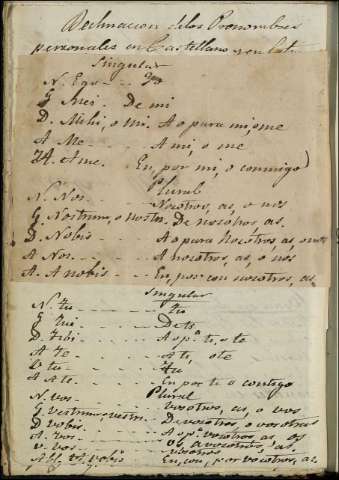 Declinacion de los Pronombres
personales en Castellano y en Latin
Singular
N. Ego - - Yo
G. Mei. De mi
D. Mihi, o mi. A o para mi, o me
A. Me - - A mi, o me
A. A me. En, por mi, o conmigo
Plural
N. Nos - - - Nosotros, as, o nos
G. Nostrum, o nostri. De nosotros, as.
D. Nobis - - A o para Nosotros, as, o nos
A. Nos - - - A nosotros, as, o nos
A. A nobis - - En, por, con nosotros, as.
Singular
N. tu - - - - tu
G. tui - - - - De ti
D. Tibi - - - A o pa. ti, o te
A. Te - - - - A ti, o te
V. tu - - - - Tu
A. A te - - - En por ti o contigo
Plural
N. vos - - - vosotros, as, o vos
G. vestrum, vestri. De vosotros, o vosotras
D. vobis - - - A o pa. vosotros, as, os
A. vos - - - os, a vosotros, as,
V. vos - - - vosotros
Abl. A vobis - En, con, por vosotros, as.